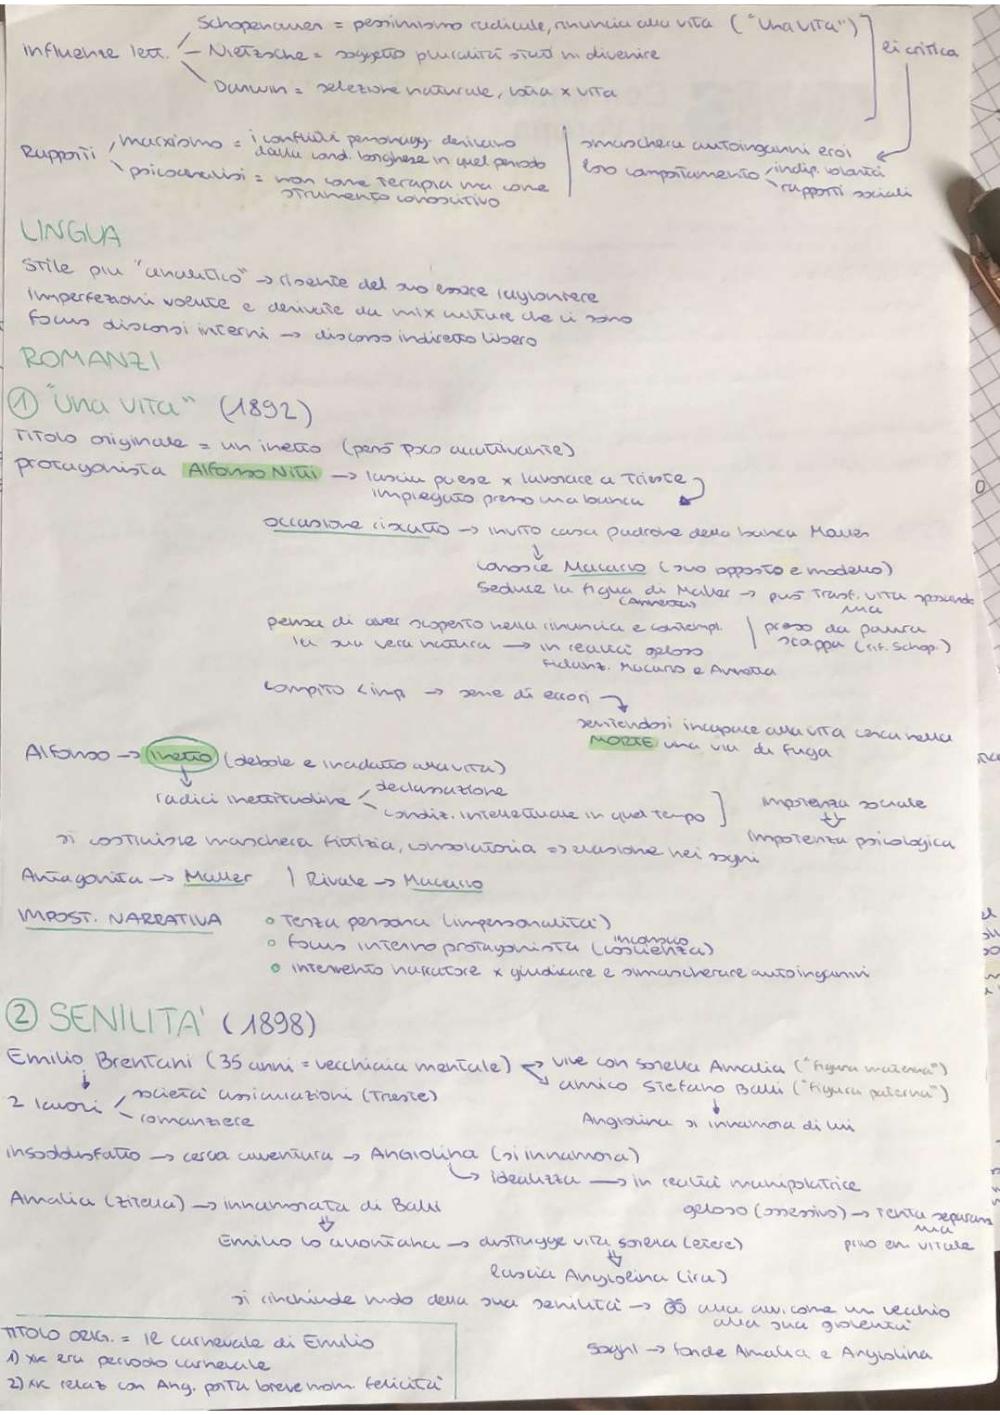 Schopenauer = pessimismo radicale, rinuncia alla vita ("Una vita")
influenze lett. – Nietzsche = soggetto pluralità stati in divenire
Darwin = selezione naturale, lotta x vita
ei critica
Rapporti
marxismo = i conflitti personagg. derivano dalla cond. borghese in quel periodo
psicoanalisi = non come terapia ma come strumento conoscitivo
smaschera autoinganni eroi
loro comportamento
indip. volontà
rapporti sociali
LINGUA
Stile più "analitico" → risente del suo essere ragioniere
Imperfezioni volute e derivate da mix culture che ci sono
focus discorsi interni → discorso indiretto libero
ROMANZI
① "Una vita" (1892)
Titolo originale = un inetto (però poco accattivante)
protagonista Alfonso Nitti → lascia paese x lavorare a Trieste
impiegato presso una banca
occasione riscatto → invito casa padrone della banca Maller
↓
conosce Macario (suo opposto e modello)
Seduce la figlia di Maller → può trasf. vita sposando
(Annetta) ma
pensa di aver scoperto nella rinuncia e contempl. | preso da paura
la sua vera natura → in realtà geloso scappa (rif. Schop.)
fidanz. Macario e Annetta
compito < imp → serie di errori
sentendosi incapace alla vita cerca nella
MORTE una via di fuga
Alfonso → inetto (debole e inadatto alla vita)
↓
radici inettitudine
declassazione
condiz. intellettuale in quel tempo
impotenza sociale
⇓
impotenza psicologica
si costruisce maschera fittizia, consolatoria ⇒ evasione nei sogni
Antagonita → Maller | Rivale → Macario
IMPOST. NARRATIVA
• Terza persona (impersonalità)
• focus interno protagonista (coscienza)
inconscio
• intervento narratore x giudicare e smascherare autoinganni
② SENILITA' (1898)
Emilio Brentani (35 anni = vecchiaia mentale)
→ vive con sorella Amalia ("figura materna")
→ amico Stefano Balli ("figura paterna")
↓
Angiolina si innamora di lui
2 lavori
società assicurazioni (Trieste)
romanziere
insoddisfatto → cerca avventura → Angiolina (si innamora)
↳ idealizza → in realtà manipolatrice
geloso (ossessivo) → tenta separarsi
ma
privo en. vitale
Amalia (zitella) → innamorata di Balli
⇓
Emilio lo allontana → distrugge vita sorella (etere)
⇓
lascia Angiolina (ira)
si rinchiude nido della sua senilità →
alla sua gioventù
sogni → fonde Amalia e Angiolina
TITOLO ORIG. = il carnevale di Emilio
1) xk era periodo carnevale
2) xk relaz con Ang. porta breve mom. felicità